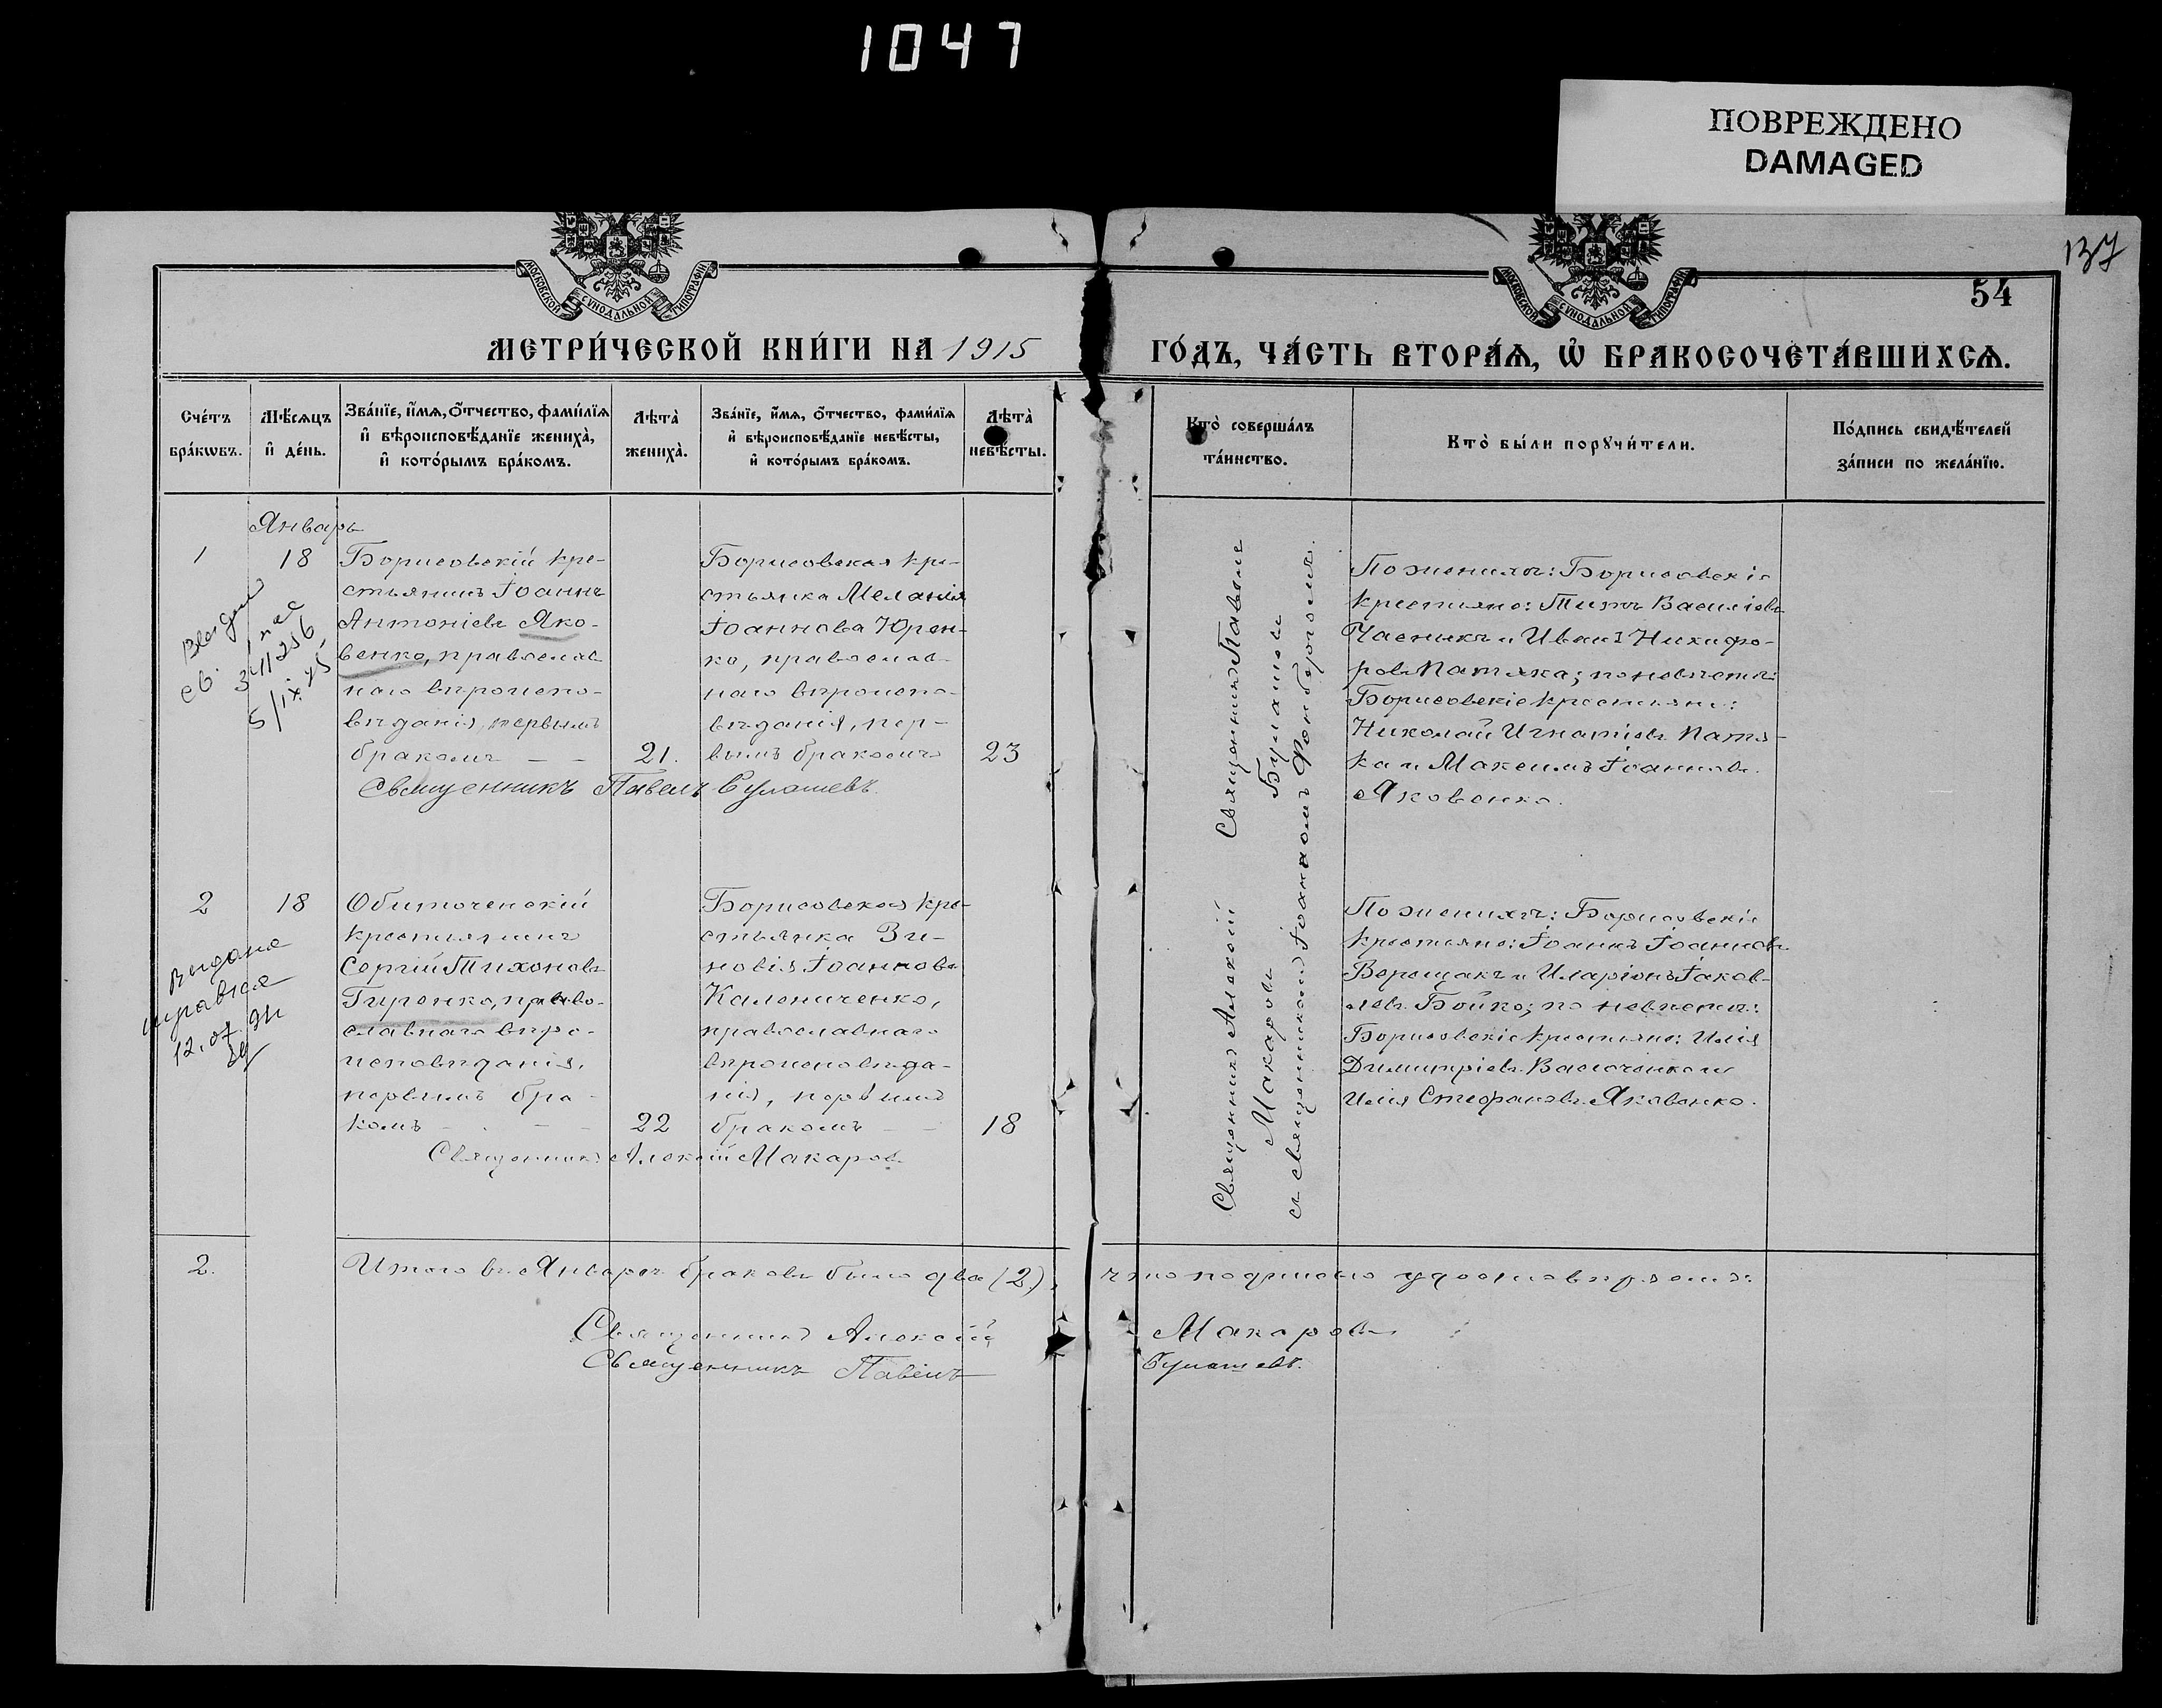 1047
ПОВРЕЖДЕНО
DAMAGED
137
54
МОСКОВСКОЙ СѴНОДАЛЬНОЙ ТИПОГРАФІИ
МОСКОВСКОЙ СѴНОДАЛЬНОЙ ТИПОГРАФІИ
МЕТРИ́ЧЕСКОЙ КНИ́ГИ НА 1915
ГО́ДЪ, ЧА́СТЬ ВТОРА́Ѧ, Ѽ БРАКОСОЧЕТА́ВШИХСѦ.
Сче́тъ
бра́кѡвъ.
Мѣ́сѧцъ
и҆ де́нь.
Зва́нїе, и҆́мѧ, о҆́тчество, фами́лїѧ
и҆ вѣроисповѣ́данїе жениха̀,
и҆ кото́рымъ бра́комъ.
Лѣта̀
жениха̀.
Зва́нїе, и҆́мѧ, о҆́тчество, фами́лїѧ
и҆ вѣроисповѣ́данїе невѣ́сты,
и҆ кото́рымъ бра́комъ.
Лѣта̀
невѣ́сты.
Кто̀ соверша́лъ
та́инство.
Кто̀ бы́ли порꙋчи́тели.
По́дпись свидѣ́телей
за́писи по жела́нїю.
Январь
1
18
Борисовскій кре-
стьянинъ Іоаннъ
Антоніевъ Яко-
венко, православ
наго вѣроиспо-
вѣданія, первымъ
бракомъ — —
21.
Борисовская кре-
стьянка Меланія
Іоаннова Юрен-
ко, православ-
наго вѣроиспо-
вѣданія, пер-
вымъ бракомъ
23
Священникъ Павелъ Булашевъ.
Священникъ Павелъ
Булашевъ
По женихѣ: Борисовскіе
крестьяне: Титъ Василіевъ
Часникъ и Иванъ Никифо-
ровъ Патяка; по невѣстѣ:
Борисовскіе крестьяне:
Николай Игнатіевъ Патя-
ка и Максимъ Іоанновъ
Яковенко.
2
18
12.07
Обиточенскій
крестьянинъ
Сергій Тихоновъ
Гиренко, право-
славнаго вѣро-
исповѣданія,
первымъ бра-
комъ — —
22
Борисовская кре-
стьянка Зи-
новія Іоаннова
Калениченко,
православнаго
вѣроисповѣда-
нія, первымъ
бракомъ — —
18
Священникъ Алексій Макаровъ
Священникъ Алексій
Макаровъ
По женихѣ: Борисовскіе
крестьяне: Іоаннъ Іоанновъ
Верещакъ и Иларіонъ Іаков-
левъ Бойко; по невѣстѣ:
Борисовскіе крестьяне: Илія
Димитріевъ Василенко и
Илія Стефановъ Яковенко.
2.
Итого въ Январѣ браковъ было два (2), что подписью удостовѣряемъ:
Священникъ Алексій Макаровъ
Священникъ Павелъ Булашевъ.